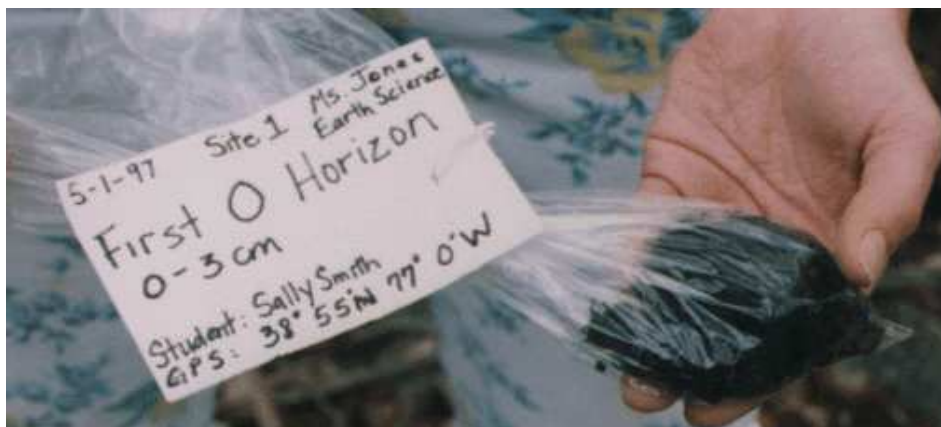 5-1-97 Site 1 Ms. Jones
Earth Science
First O Horizon
0-3 cm
Student: Sally Smith
GPS: 38° 55'N 77° 0'W